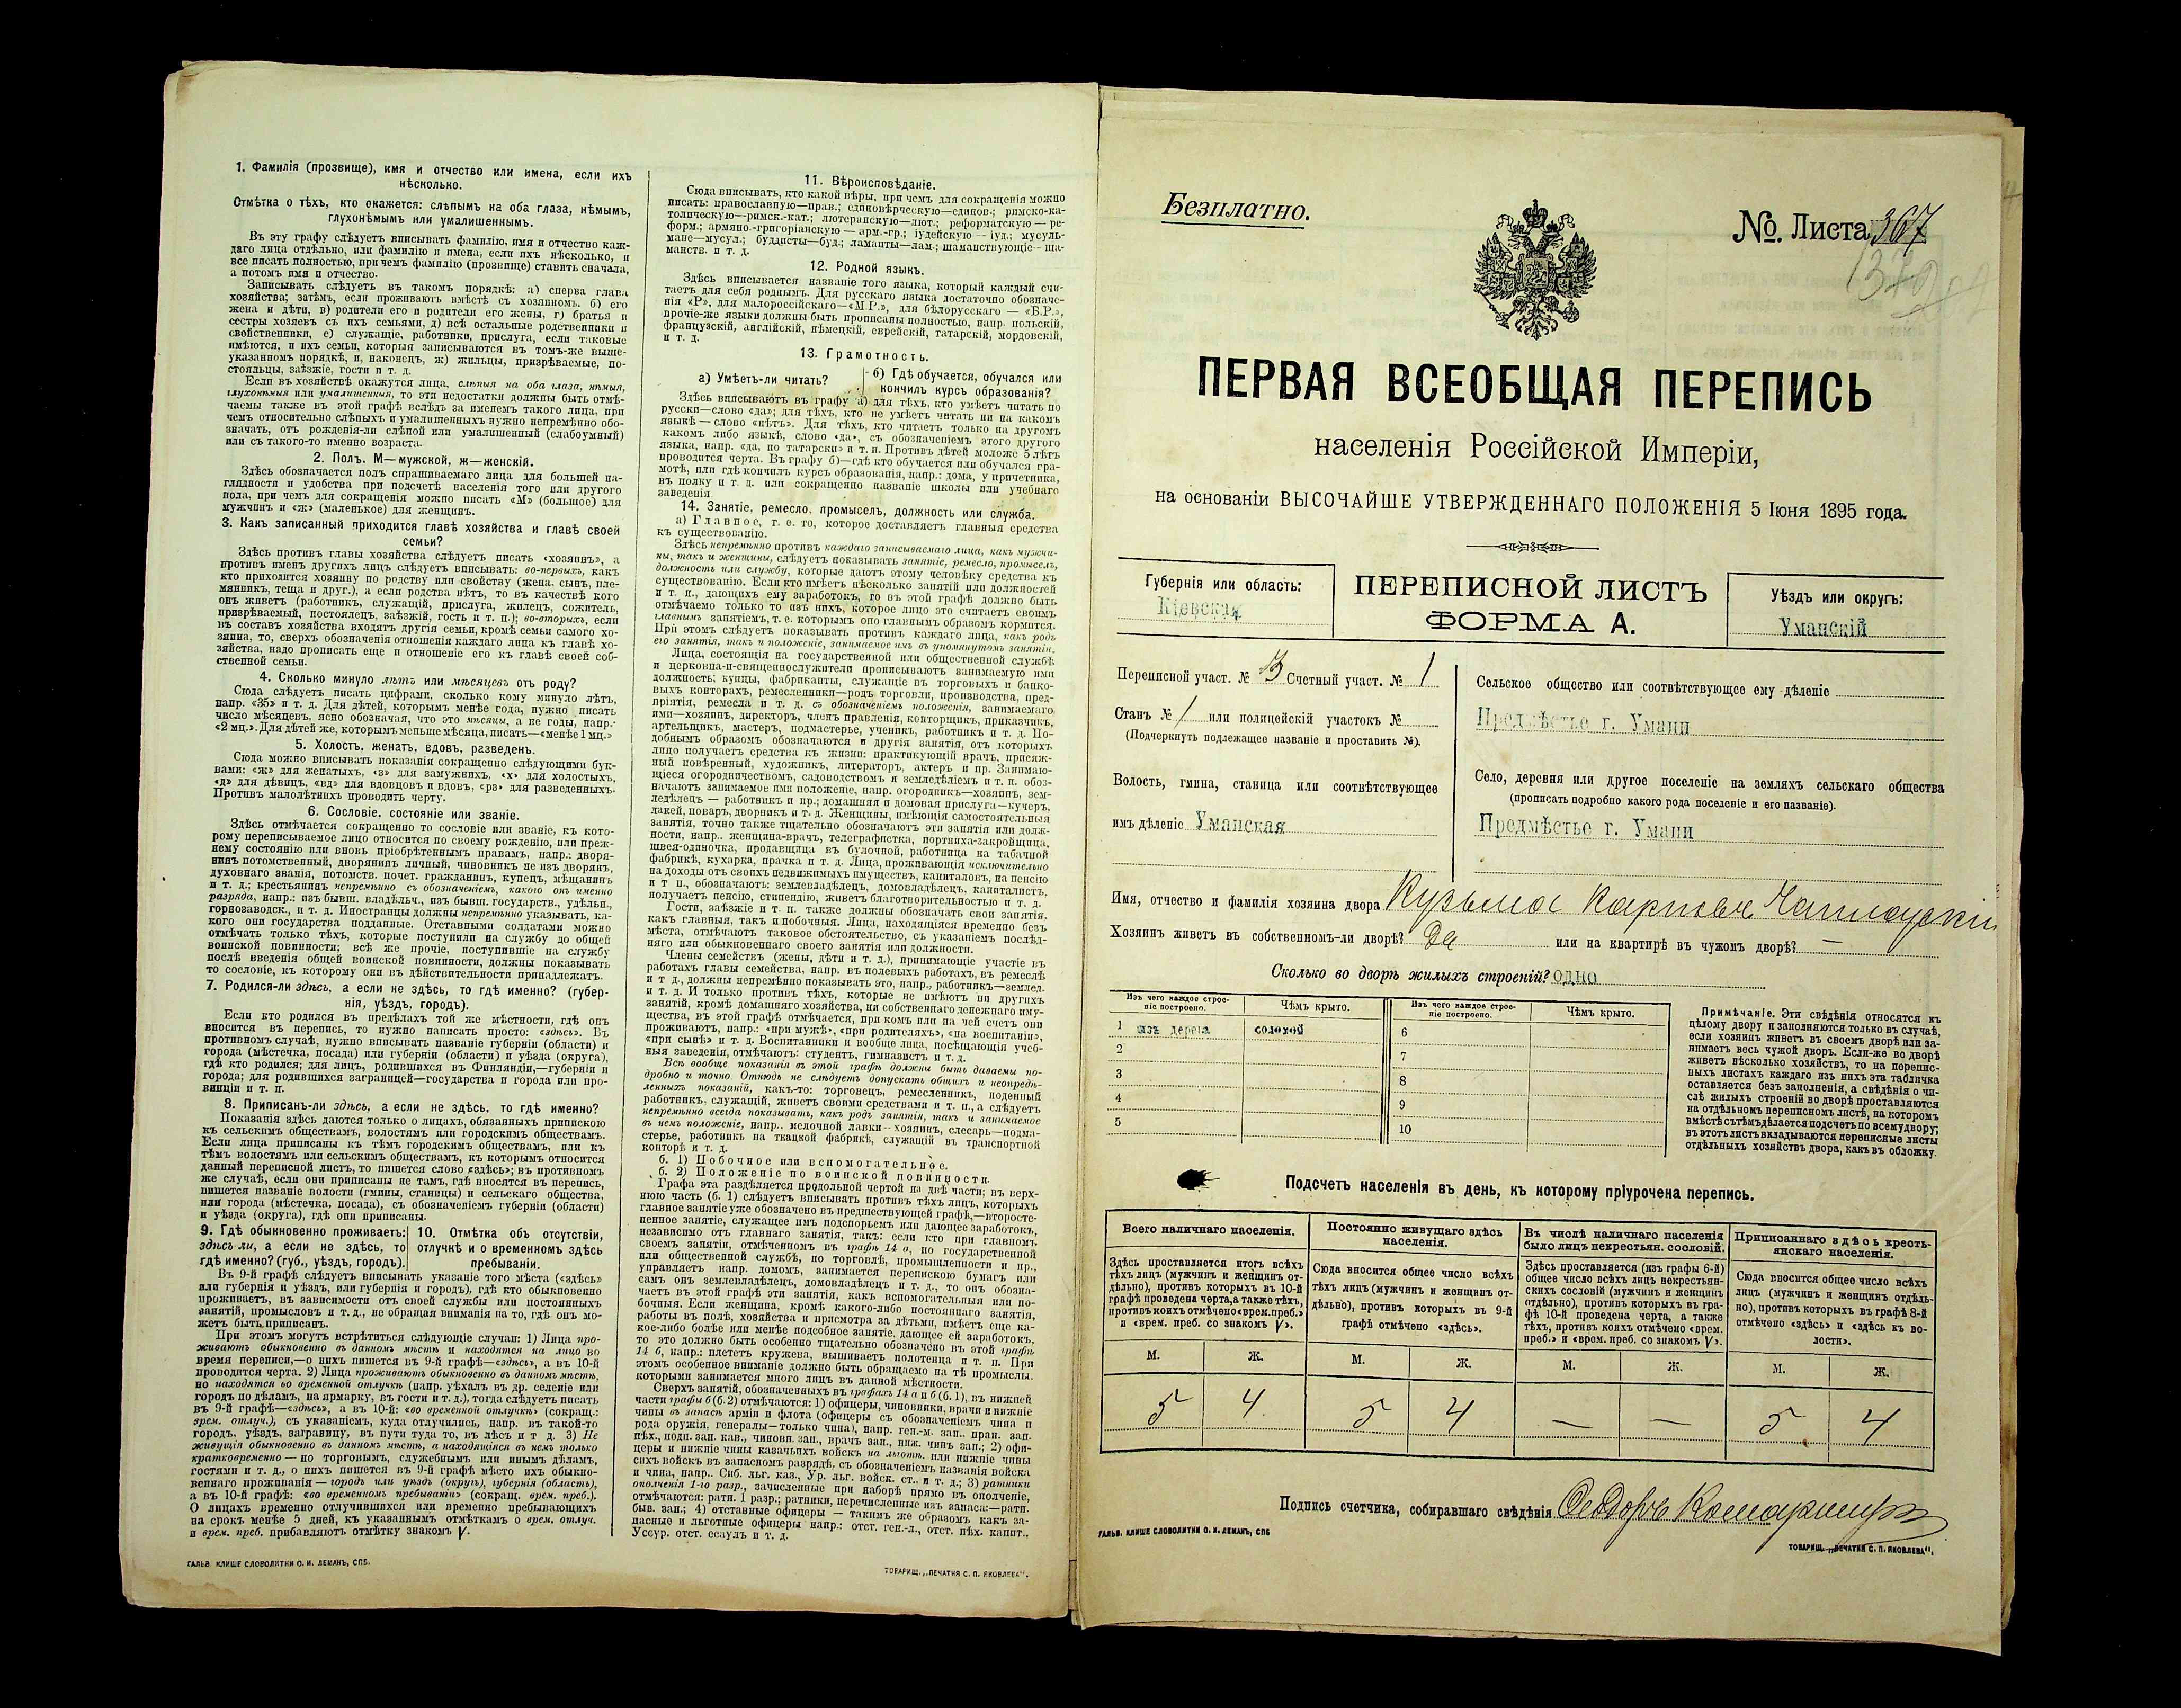 1. Фамилія (прозвище), имя и отчество или имена, если ихъ
нѣсколько.
Отмѣтка о тѣхъ, кто окажется: слѣпымъ на оба глаза, нѣмымъ,
глухонѣмымъ или умалишеннымъ.
Въ эту графу слѣдуетъ вписывать фамилію, имя и отчество каж-
даго лица отдѣльно, или фамилію и имена, если ихъ нѣсколько, и
все писать полностью, при чемъ фамилію (прозвище) ставить сначала,
а потомъ имя и отчество.
Записывать слѣдуетъ въ такомъ порядкѣ: а) сперва глава
хозяйства; затѣмъ, если проживаютъ вмѣстѣ съ хозяиномъ, б) его
жена и дѣти, в) родители его и родители его жены, г) братья и
сестры хозяевъ съ ихъ семьями, д) всѣ остальные родственники и
свойственники, е) служащіе, работники, прислуга, если таковые
имѣются, и ихъ семьи, которыя записываются въ томъ-же выше-
указанномъ порядкѣ, и, наконецъ, ж) жильцы, призрѣваемые, по-
стояльцы, заѣзжіе, гости и т. д.
Если въ хозяйствѣ окажутся лица, слѣпыя на оба глаза, нѣмыя,
глухонѣмыя или умалишенныя, то эти недостатки должны быть отмѣ-
чаемы также въ этой графѣ вслѣдъ за именемъ такого лица, при
чемъ относительно слѣпыхъ и умалишенныхъ нужно непремѣнно обо-
значать, отъ рожденія-ли слѣпой или умалишенный (слабоумный)
или съ такого-то именно возраста.
2. Полъ. М—мужской, ж—женскій.
Здѣсь обозначается полъ спрашиваемаго лица для большей на-
глядности и удобства при подсчетѣ населенія того или другого
пола, при чемъ для сокращенія можно писать «М» (большое) для
мужчинъ и «ж» (маленькое) для женщинъ.
3. Какъ записанный приходится главѣ хозяйства и главѣ своей
семьи?
Здѣсь противъ главы хозяйства слѣдуетъ писать «хозяинъ», а
противъ именъ другихъ лицъ слѣдуетъ вписывать: во-первыхъ, какъ
кто приходится хозяину по родству или свойству (жена, сынъ, пле-
мянникъ, теща и друг.), а если родства нѣтъ, то въ качествѣ кого
онъ живетъ (работникъ, служащій, прислуга, жилецъ, сожитель,
призрѣваемый, постоялецъ, заѣзжій, гость и т. п.); во-вторыхъ, если
въ составъ хозяйства входятъ другія семьи, кромѣ семьи самого хо-
зяина, то, сверхъ обозначенія отношенія каждаго лица къ главѣ хо-
зяйства, надо прописать еще и отношеніе его къ главѣ своей соб-
ственной семьи.
4. Сколько минуло лѣтъ или мѣсяцевъ отъ роду?
Сюда слѣдуетъ писать цифрами, сколько кому минуло лѣтъ,
напр. «35» и т. д. Для дѣтей, которымъ менѣе года, нужно писать
число мѣсяцевъ, ясно обозначая, что это мѣсяцы, а не годы, напр.
«2 мц.». Для дѣтей же, которымъ меньше мѣсяца, писать—«менѣе 1 мц.»
5. Холостъ, женатъ, вдовъ, разведенъ.
Сюда можно вписывать показанія сокращенно слѣдующими бук-
вами: «ж» для женатыхъ, «з» для замужнихъ, «х» для холостыхъ,
«д» для дѣвицъ, «вд» для вдовцовъ и вдовъ, «рз» для разведенныхъ.
Противъ малолѣтнихъ проводить черту.
6. Сословіе, состояніе или званіе.
Здѣсь отмѣчается сокращенно то сословіе или званіе, къ кото-
рому переписываемое лицо относится по своему рожденію, или преж-
нему состоянію или вновь пріобрѣтеннымъ правамъ, напр.: дворя-
нинъ потомственный, дворянинъ личный, чиновникъ не изъ дворянъ,
духовнаго званія, потомств. почет. гражданинъ, купецъ, мѣщанинъ
и т. д.; крестьянинъ непремѣнно съ обозначеніемъ, какого онъ именно
разряда, напр.: изъ бывш. владѣльч., изъ бывш. государств., удѣльн.,
горнозаводск., и т. д. Иностранцы должны непремѣнно указывать, ка-
кого они государства подданные. Отставными солдатами можно
отмѣчать только тѣхъ, которые поступили на службу до общей
воинской повинности; всѣ же прочіе, поступившіе на службу
послѣ введенія общей воинской повинности, должны показывать
то сословіе, къ которому они въ дѣйствительности принадлежатъ.
7. Родился-ли здѣсь, а если не здѣсь, то гдѣ именно? (губер-
нія, уѣздъ, городъ).
Если кто родился въ предѣлахъ той же мѣстности, гдѣ онъ
вносится въ перепись, то нужно написать просто: «здѣсь». Въ
противномъ случаѣ, нужно вписывать названіе губерніи (области) и
города (мѣстечка, посада) или губерніи (области) и уѣзда (округа),
гдѣ кто родился; для лицъ, родившихся въ Финляндіи,—губерніи и
города; для родившихся заграницей—государства и города или про-
винціи и т. п.
8. Приписанъ-ли здѣсь, а если не здѣсь, то гдѣ именно?
Показанія здѣсь даются только о лицахъ, обязанныхъ припискою
къ сельскимъ обществамъ, волостямъ или городскимъ обществамъ.
Если лица приписаны къ тѣмъ городскимъ обществамъ, или къ
тѣмъ волостямъ или сельскимъ обществамъ, къ которымъ относится
данный переписной листъ, то пишется слово «здѣсь»; въ противномъ
же случаѣ, если они приписаны не тамъ, гдѣ вносятся въ перепись,
пишется названіе волости (гмины, станицы) и сельскаго общества,
или города (мѣстечка, посада), съ обозначеніемъ губерніи (области)
и уѣзда (округа), гдѣ они приписаны.
9. Гдѣ обыкновенно проживаетъ:
здѣсь ли, а если не здѣсь, то
гдѣ именно? (губ., уѣздъ, городъ).
10. Отмѣтка объ отсутствіи,
отлучкѣ и о временномъ здѣсь
пребываніи.
Въ 9-й графѣ слѣдуетъ вписывать указаніе того мѣста («здѣсь»
или губернія и уѣздъ, или губернія и городъ), гдѣ кто обыкновенно
проживаетъ, въ зависимости отъ своей службы или постоянныхъ
занятій, промысловъ и т. д., не обращая вниманія на то, гдѣ онъ мо-
жетъ быть приписанъ.
При этомъ могутъ встрѣтиться слѣдующіе случаи: 1) Лица про-
живаютъ обыкновенно въ данномъ мѣстѣ и находятся на лицо во
время переписи,—о нихъ пишется въ 9-й графѣ—«здѣсь», а въ 10-й
проводится черта. 2) Лица проживаютъ обыкновенно въ данномъ мѣстѣ,
но находятся во временной отлучкѣ (напр. уѣхалъ въ др. селеніе или
городъ по дѣламъ, на ярмарку, въ гости и т. д.), тогда слѣдуетъ писать
въ 9-й графѣ—«здѣсь», а въ 10-й: «во временной отлучкѣ» (сокращ.:
врем. отлуч.), съ указаніемъ, куда отлучились, напр. въ такой-то
городъ, уѣздъ, заграницу, въ пути туда то, въ лѣсъ и т д. 3) Не
живущія обыкновенно въ данномъ мѣстѣ, а находящіяся въ немъ только
кратковременно — по торговымъ, служебнымъ или инымъ дѣламъ,
гостями и т. д., о нихъ пишется въ 9-й графѣ мѣсто ихъ обыкно-
веннаго проживанія — городъ или уѣздъ (округъ), губернія (область),
а въ 10-й графѣ: «во временномъ пребываніи» (сокращ. врем. преб.).
О лицахъ временно отлучившихся или временно пребывающихъ
на срокъ менѣе 5 дней, къ указаннымъ отмѣткамъ о врем. отлуч.
и врем. преб. прибавляютъ отмѣтку знакомъ V.
ГАЛЬВ. КЛИШЕ СЛОВОЛИТНИ О. И. ЛЕМАНЪ, СПБ.
11. Вѣроисповѣданіе.
Сюда вписывать, кто какой вѣры, при чемъ для сокращенія можно
писать: православную—прав.; единовѣрческую—единов.; римско-ка-
толическую—римск.-кат.; лютеранскую—лют.; реформатскую — ре-
форм.; армяно.-григоріанскую — арм.-гр.; іудейскую — іуд.; мусуль-
мане—мусул.; буддисты—буд.; ламаиты—лам.; шаманствующіе—ша-
манств. и т. д.
12. Родной языкъ.
Здѣсь вписывается названіе того языка, который каждый счи-
таетъ для себя роднымъ. Для русскаго языка достаточно обозначе-
нія «Р», для малороссійскаго—«М.Р.», для бѣлорусскаго — «Б.Р.»,
прочіе-же языки должны быть прописаны полностью, напр. польскій,
французскій, англійскій, нѣмецкій, еврейскій, татарскій, мордовскій,
и т. д.
13. Грамотность.
а) Умѣетъ-ли читать?
б) Гдѣ обучается, обучался или
кончилъ курсъ образованія?
Здѣсь вписываютъ въ графу а) для тѣхъ, кто умѣетъ читать по
русски—слово «да»; для тѣхъ, кто не умѣетъ читать ни на какомъ
языкѣ — слово «нѣтъ». Для тѣхъ, кто читаетъ только на другомъ
какомъ либо языкѣ, слово «да», съ обозначеніемъ этого другого
языка, напр. «да, по татарски» и т. п. Противъ дѣтей моложе 5 лѣтъ
проводится черта. Въ графу б)—гдѣ кто обучается или обучался гра-
мотѣ, или гдѣ кончилъ курсъ образованія, напр.: дома, у причетника,
въ полку и т. д. или сокращенно названіе школы или учебнаго
заведенія.
14. Занятіе, ремесло, промыселъ, должность или служба.
а) Главное, т. е. то, которое доставляетъ главныя средства
къ существованію.
Здѣсь непремѣнно противъ каждаго записываемаго лица, какъ мужчи-
ны, такъ и женщины, слѣдуетъ показывать занятіе, ремесло, промыселъ,
должность или службу, которые даютъ этому человѣку средства къ
существованію. Если кто имѣетъ нѣсколько занятій или должностей
и т. п., дающихъ ему заработокъ, то въ этой графѣ должно быть
отмѣчаемо только то изъ нихъ, которое лицо это считаетъ своимъ
главнымъ занятіемъ, т. е. которымъ оно главнымъ образомъ кормится.
При этомъ слѣдуетъ показывать противъ каждаго лица, какъ родъ
его занятія, такъ и положеніе, занимаемое имъ въ упомянутомъ занятіи.
Лица, состоящія на государственной или общественной службѣ
и церковна-и-священнослужители прописываютъ занимаемую ими
должность; купцы, фабриканты, служащіе въ торговыхъ и банко-
выхъ конторахъ, ремесленники—родъ торговли, производства, пред-
пріятія, ремесла и т. д. съ обозначеніемъ положенія, занимаемаго
ими—хозяинъ, директоръ, членъ правленія, конторщикъ, приказчикъ,
артельщикъ, мастеръ, подмастерье, ученикъ, работникъ и т. д. По-
добнымъ образомъ обозначаются и другія занятія, отъ которыхъ
лицо получаетъ средства къ жизни: практикующій врачъ, присяж-
ный повѣренный, художникъ, литераторъ, актеръ и пр. Занимаю-
щіеся огородничествомъ, садоводствомъ и земледѣліемъ и т. п. обоз-
начаютъ занимаемое ими положеніе, напр. огородникъ—хозяинъ, зем-
ледѣлецъ — работникъ и пр.; домашняя и домовая прислуга—кучеръ,
лакей, поваръ, дворникъ и т. д. Женщины, имѣющія самостоятельныя
занятія, точно также тщательно обозначаютъ эти занятія или долж-
ности, напр.. женщина-врачъ, телеграфистка, портниха-закройщица,
швея-одиночка, продавщица въ булочной, работница на табачной
фабрикѣ, кухарка, прачка и т. д. Лица, проживающія исключительно
на доходы отъ своихъ недвижимыхъ имуществъ, капиталовъ, на пенсію
и т п., обозначаютъ: землевладѣлецъ, домовладѣлецъ, капиталистъ,
получаетъ пенсію, стипендію, живетъ благотворительностью и т. д.
Гости, заѣзжіе и т. п. также должны обозначать свои занятія,
какъ главныя, такъ и побочныя. Лица, находящіяся временно безъ
мѣста, отмѣчаютъ таковое обстоятельство, съ указаніемъ послѣд-
няго или обыкновеннаго своего занятія или должности.
Члены семействъ (жены, дѣти и т. д.), принимающіе участіе въ
работахъ главы семейства, напр. въ полевыхъ работахъ, въ ремеслѣ
и т д., должны непремѣнно показывать это, напр., работникъ—землед.
и т. д. И только противъ тѣхъ, которые не имѣютъ ни другихъ
занятій, кромѣ домашняго хозяйства, ни собственнаго денежнаго иму-
щества, въ этой графѣ отмѣчается, при комъ или на чей счетъ они
проживаютъ, напр.: «при мужѣ», «при родителяхъ», «на воспитаніи»,
«при сынѣ» и т. д. Воспитанники и вообще лица, посѣщающія учеб-
ныя заведенія, отмѣчаютъ: студентъ, гимназистъ и т. д.
Всѣ вообще показанія въ этой графѣ должны быть даваемы по-
дробно и точно. Отнюдь не слѣдуетъ допускать общихъ и неопредѣ-
ленныхъ показаній, какъ-то: торговецъ, ремесленникъ, поденный
работникъ, служащій, живетъ своими средствами и т. п., а слѣдуетъ
непремѣнно всегда показывать, какъ родъ занятія, такъ и занимаемое
въ немъ положеніе, напр.. мелочной лавки—хозяинъ, слесарь—подма-
стерье, работникъ на ткацкой фабрикѣ, служащій въ транспортной
конторѣ и т. д.
б. 1) Побочное или вспомогательное.
б. 2) Положеніе по воинской повинности.
Графа эта раздѣляется продольной чертой на двѣ части; въ верх-
нюю часть (б. 1) слѣдуетъ вписывать противъ тѣхъ лицъ, которыхъ
главное занятіе уже обозначено въ предшествующей графѣ,—второсте-
пенное занятіе, служащее имъ подспорьемъ или дающее заработокъ,
независимо отъ главнаго занятія, такъ: если кто при главномъ
своемъ занятіи, отмѣченномъ въ графѣ 14 а, по государственной
или общественной службѣ, по торговлѣ, промышленности и пр.,
управляетъ напр. домомъ, занимается перепискою бумагъ или
самъ онъ землевладѣлецъ, домовладѣлецъ и т. д., то онъ обозна-
чаетъ въ этой графѣ эти занятія, какъ вспомогательныя или по-
бочныя. Если женщина, кромѣ какого-либо постояннаго занятія,
работы въ полѣ, хозяйства и присмотра за дѣтьми, имѣетъ еще ка-
кое-либо болѣе или менѣе подсобное занятіе, дающее ей заработокъ,
то это должно быть особенно тщательно обозначено въ этой графѣ
14 б, напр.: плететъ кружева, вышиваетъ полотенца и т. п. При
этомъ особенное вниманіе должно быть обращаемо на тѣ промыслы,
которыми занимается много лицъ въ данной мѣстности.
Сверхъ занятій, обозначенныхъ въ графахъ 14 а и б (б. 1), въ нижней
части графы б (б. 2) отмѣчаются: 1) офицеры, чиновники, врачи и нижніе
чины въ запасѣ арміи и флота (офицеры съ обозначеніемъ чина и
рода оружія, генералы—только чина), напр. ген.-м. зап., прап. зап.
пѣх., подп. зап. кав., чиновн. зап., врачъ зап., ниж. чинъ зап.; 2) офи-
церы и нижніе чины казачьихъ войскъ на льготѣ, или нижніе чины
сихъ войскъ въ запасномъ разрядѣ, съ обозначеніемъ названія войска
и чина, напр.. Сиб. льг. каз., Ур. льг. войск. ст.. и т. д.; 3) ратники
ополченія 1-го разр., зачисленные при наборѣ прямо въ ополченіе,
отмѣчаются: ратн. 1 разр.; ратники, перечисленные изъ запаса:—ратн.
быв. зап.; 4) отставные офицеры — такимъ же образомъ какъ за-
пасные и льготные офицеры напр.: отст. ген.-л., отст. пѣх. капит.,
Уссур. отст. есаулъ и т. д.
ТОВАРИЩ. „ПЕЧАТНЯ С. П. ЯКОВЛЕВА".
Безплатно.
№. Листа 367
ПЕРВАЯ ВСЕОБЩАЯ ПЕРЕПИСЬ
населенія Россійской Имперіи,
на основаніи ВЫСОЧАЙШЕ УТВЕРЖДЕННАГО ПОЛОЖЕНІЯ 5 Іюня 1895 года.
Губернія или область:
Кіевская
ПЕРЕПИСНОЙ ЛИСТЪ
ФОРМА А.
Уѣздъ или округъ:
Уманскій
Переписной участ. № 13 Счетный участ. № 1
Станъ № 1 или полицейскій участокъ №
(Подчеркнуть подлежащее названіе и проставить №).
Волость, гмина, станица или соотвѣтствующее
имъ дѣленіе Уманская
Сельское общество или соотвѣтствующее ему дѣленіе
Предмѣстье г. Умани
Село, деревня или другое поселеніе на земляхъ сельскаго общества
(прописать подробно какого рода поселеніе и его названіе).
Предмѣстье г. Умани
Имя, отчество и фамилія хозяина двора Кузьма Карповъ
Хозяинъ живетъ въ собственномъ-ли дворѣ? Да или на квартирѣ въ чужомъ дворѣ? —
Сколько во дворѣ жилыхъ строеній? одно
Изъ чего каждое строе-
ніе построено.
Чѣмъ крыто.
Изъ чего каждое строе-
ніе построено.
Чѣмъ крыто.
1 изъ дерева соломой 6
2 7
3 8
4 9
5 10
Примѣчаніе. Эти свѣдѣнія относятся къ
цѣлому двору и заполняются только въ случаѣ,
если хозяинъ живетъ въ своемъ дворѣ или за-
нимаетъ весь чужой дворъ. Если-же во дворѣ
живетъ нѣсколько хозяйствъ, то на перепис-
ныхъ листахъ каждаго изъ нихъ эта табличка
оставляется безъ заполненія, а свѣдѣнія о чи-
слѣ жилыхъ строеній во дворѣ проставляются
на отдѣльномъ переписномъ листѣ, на которомъ
вмѣстѣ съ тѣмъ дѣлается подсчетъ по всему двору;
въ этотъ листъ вкладываются переписные листы
отдѣльныхъ хозяйствъ двора, какъ въ обложку.
Подсчетъ населенія въ день, къ которому пріурочена перепись.
Всего наличнаго населенія.
Здѣсь проставляется итогъ всѣхъ
тѣхъ лицъ (мужчинъ и женщинъ от-
дѣльно), противъ которыхъ въ 10-й
графѣ проведена черта, а также тѣхъ,
противъ коихъ отмѣчено «врем. преб.»
и «врем. преб. со знакомъ V».
Постоянно живущаго здѣсь
населенія.
Сюда вносится общее число всѣхъ
тѣхъ лицъ (мужчинъ и женщинъ от-
дѣльно), противъ которыхъ въ 9-й
графѣ отмѣчено «здѣсь».
Въ числѣ наличнаго населенія
было лицъ некрестьян. сословій.
Здѣсь проставляется (изъ графы 6-й)
общее число всѣхъ лицъ некрестьян-
скихъ сословій (мужчинъ и женщинъ
отдѣльно), противъ которыхъ въ гра-
фѣ 10-й проведена черта, а также
тѣхъ, противъ коихъ отмѣчено «врем.
преб.» и «врем. преб. со знакомъ V».
Приписаннаго здѣсь кресть-
янскаго населенія.
Сюда вносится общее число всѣхъ
лицъ (мужчинъ и женщинъ отдѣль-
но), противъ которыхъ въ графѣ 8-й
отмѣчено «здѣсь» и «здѣсь къ во-
лости».
М. Ж. М. Ж. М. Ж. М. Ж.
5 4 5 4 — — 5 4
Подпись счетчика, собиравшаго свѣдѣнія Ѳеодоръ
ГАЛЬВ. КЛИШЕ СЛОВОЛИТНИ О. И. ЛЕМАНЪ, СПБ
ТОВАРИЩ. „ПЕЧАТНЯ С. П. ЯКОВЛЕВА".